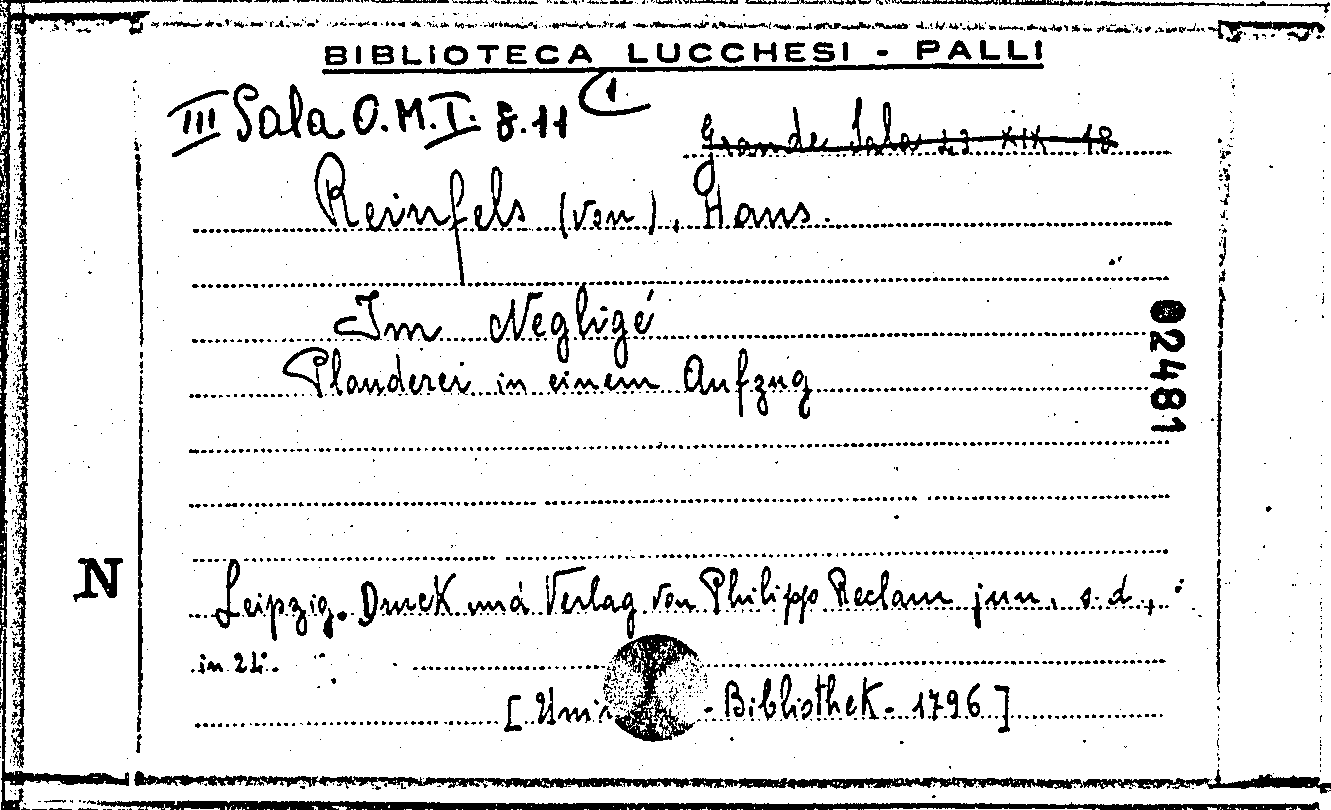 BIBLIOTECA LUCCHESI - PALLI
III Sala O.M.I. 8.11 (1.
Grande Sala 23 XIX 18
Reinfels (von), Hans.
Im Negligé
Plauderei in einem Aufzug
02481
N
Leipzig. Druck und Verlag von Philipp Reclam jun. s.d.,
in 24°.
[ - Bibliothek - 1796 ]